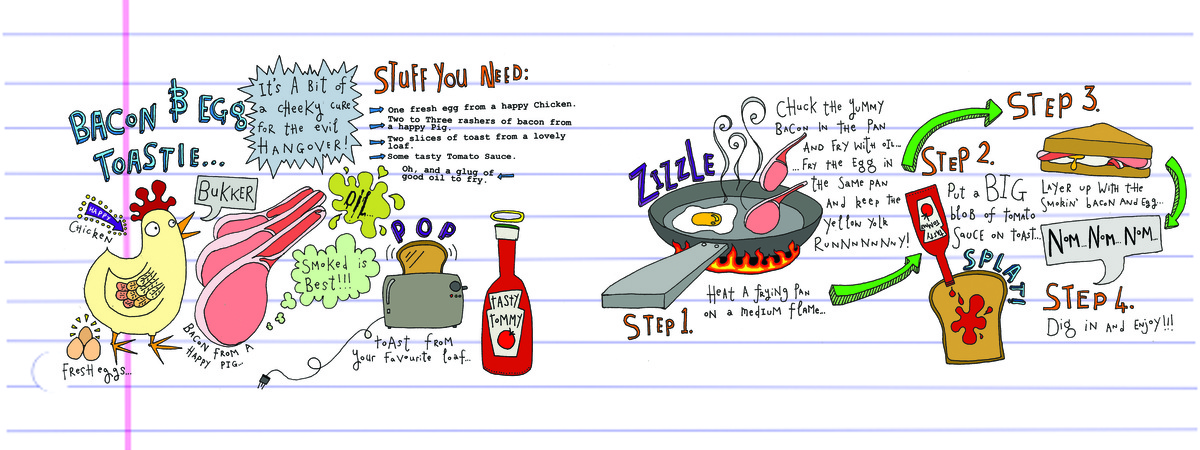 BACON & EGG
TOASTIE...
IT'S A BIT OF
a cheeky cure
FOR THE EVIL
HANGOVER!
STUFF YOU NEED:
One fresh egg from a happy Chicken.
Two to Three rashers of bacon from
a happy Pig.
Two slices of toast from a lovely
loaf.
Some tasty Tomato Sauce.
Oh, and a glug of
good oil to fry.
HAPPY
CHICKEN
BUKKER
OIL...
SMOKED IS
BEST!!!
POP
TASTY
TOMMY
FRESH eggs...
BACON FROM A
HAPPY PIG...
TOAST FROM
your favourite loaf...
ZIZZLE
CHUCK THE YUMMY
BACON IN THE PAN
AND FRY WITH OIL...
...FRY THE EGG IN
the SAME PAN
AND KEEP THE
YELLOW YOLK
RUNNNNNNNY!
HEAT A FRYING PAN
ON A MEDIUM FLAME...
STEP 1.
STEP 2.
PUT A BIG
blob OF TOMATO
SAUCE ON TOAST...
TASTY
TOMMY
SPLAT!
STEP 3.
LAYER UP WITH THE
SMOKIN' BACON AND EGG...
NOM... NOM... NOM...
STEP 4.
DIG IN AND ENJOY!!!